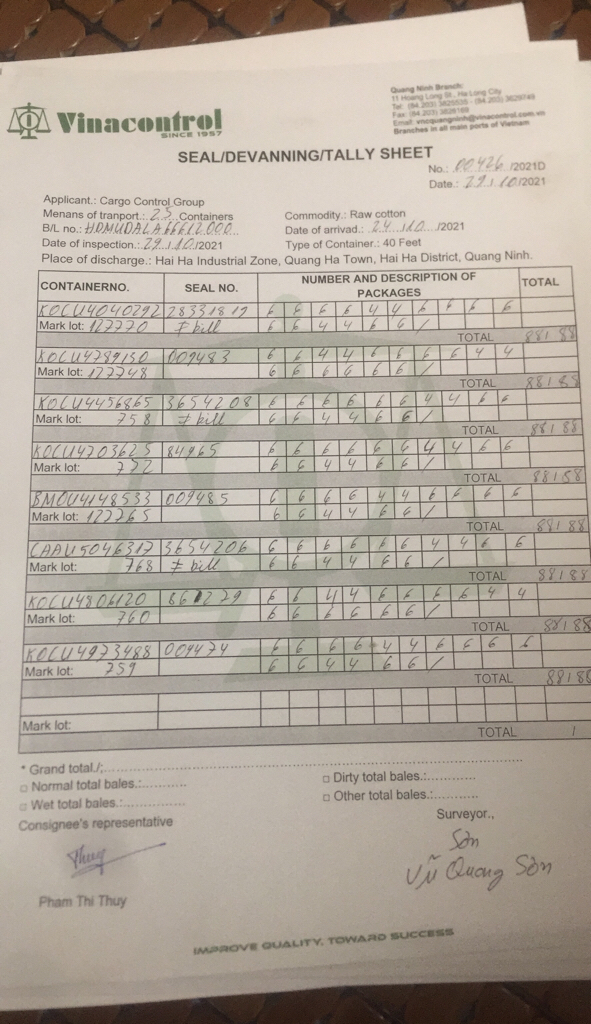 Vinacontrol
SINCE 1957
Quang Ninh Branch:
11 Hoang Long St., Ha Long City
Branches in all main ports of Vietnam
SEAL/DEVANNING/TALLY SHEET
No.: 00426 /2021D
Date.: 29/10/2021
Applicant.: Cargo Control Group
Menans of tranport.: 23 Containers
Commodity.: Raw cotton
B/L no.: HDMUDALA66612000
Date of arrivad.: 24/10/2021
Date of inspection.: 29/10/2021
Type of Container.: 40 Feet
Place of discharge.: Hai Ha Industrial Zone, Quang Ha Town, Hai Ha District, Quang Ninh.
CONTAINERNO. SEAL NO. NUMBER AND DESCRIPTION OF PACKAGES TOTAL
KOCU4040292 28331819 6 6 6 6 4 4 6 6 6 6
Mark lot: 127770 ≠ bill 6 6 4 4 6 6 /
TOTAL 88 88
KOCU4789130 009483 6 6 4 4 6 6 6 6 4 4
Mark lot: 127748 6 6 6 6 6 6 /
TOTAL 88 88
KOCU4456865 3654208 6 6 6 6 6 6 4 4 6 6
Mark lot: 758 ≠ bill 6 6 4 4 6 6 /
TOTAL 88 88
KOCU4703625 84965 6 6 6 6 6 6 4 4 6 6
Mark lot: 772 6 6 4 4 6 6 /
TOTAL 88 88
BMOU4148533 009485 6 6 6 6 4 4 6 6 6 6
Mark lot: 127765 6 6 4 4 6 6 /
TOTAL 88 88
CAAU5046317 3654206 6 6 6 6 6 6 4 4 6 6
Mark lot: 768 ≠ bill 6 6 4 4 6 6 /
TOTAL 88 88
KOCU4806120 861279 6 6 4 4 6 6 6 6 4 4
Mark lot: 760 6 6 6 6 6 6 /
TOTAL 88 88
KOCU4973488 009474 6 6 6 6 4 4 6 6 6 6
Mark lot: 759 6 6 4 4 6 6 /
TOTAL 88 88
Mark lot:
TOTAL /
* Grand total./:
□ Normal total bales.:
□ Dirty total bales.:
□ Wet total bales.:
□ Other total bales.:
Consignee's representative
Surveyor.,
Thuy
Sơn
Vũ Quang Sơn
Pham Thi Thuy
IMPROVE QUALITY, TOWARD SUCCESS